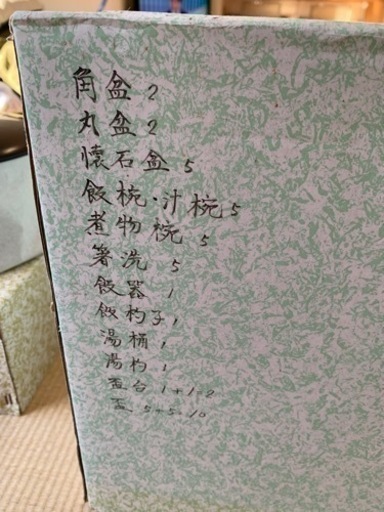 角盆 2
丸盆 2
懐石盆 5
飯椀・汁椀 5
煮物椀 5
箸洗 5
飯器 1
飯杓子 1
湯桶 1
湯杓 1
盃台 1+1=2
盃 5+5=10